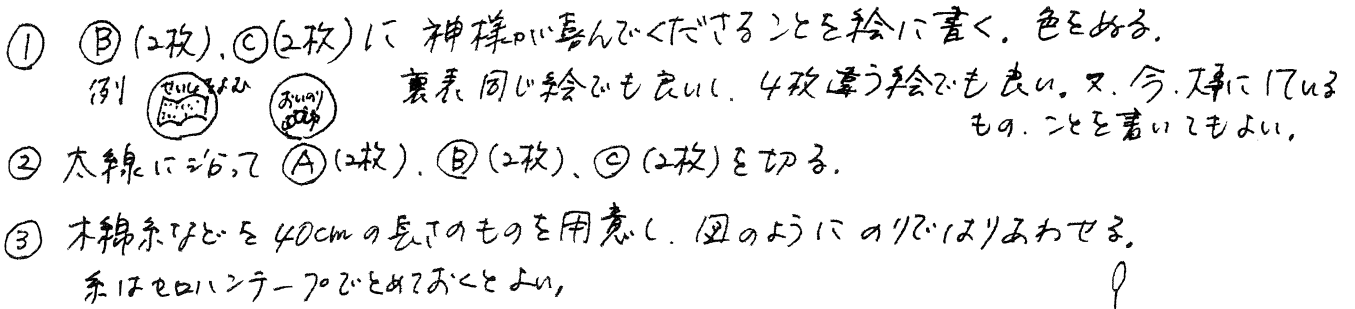 ① Ⓑ(2枚)、Ⓒ(2枚)に 神様が喜んでくださることを絵に書く。色をぬる。
例 せいしょをよむ おいのり 裏表同じ絵でも良いし、4枚違う絵でも良い。又、今、大事にしている
もの、ことを書いてもよい。
② 太線に沿って Ⓐ(2枚)、Ⓑ(2枚)、Ⓒ(2枚)を切る。
③ 木綿糸などを40cmの長さのものを用意し、図のようにのりではりあわせる。
糸はセロハンテープでとめておくとよい。